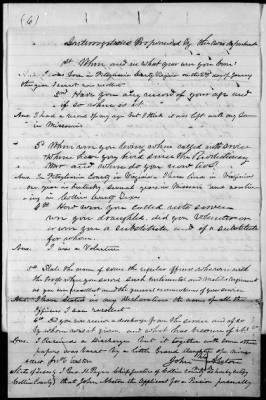 (6)
Interrogatories Propounded by the War department
1st When, and in what year were you born
Ans I was born in Pittsylvania County Virginia on the 2nd day of January
the year I cannot now recollect
2nd Have you any record of your age and
if so where is it
Ans I had a record of my age but I think it was left with my Son
in Missouri
3d When were you living when called into service
Where have you lived since the Revolutionary
War and where do you now live
Ans In Pittsylvania County in Virginia. I have lived in Virginia
one year in Kentucky Several years in Missouri and now live
ing in Collin County Texas
4th How were you called into service
were you draughted, did you volunteer or
were you a substitute and if a substitute
for whom
Ans I was a Volunteer
5th State the names of some of the regular officers who were with
the troops when you served such continental and militia regiments
as you can recollect and the general circumstances of your service
Ans I have stated in my declaration the names of all the
Officers I can recollect
6th Did you ever receive a discharge from the service and if so
by whom was it given and what has become of it
Ans I Received a discharge but it together with some other
papers was burnt by a little Grand daughter of mine
John Abston
State of Texas
Collin County that John Abston the applicant for a Pension personally